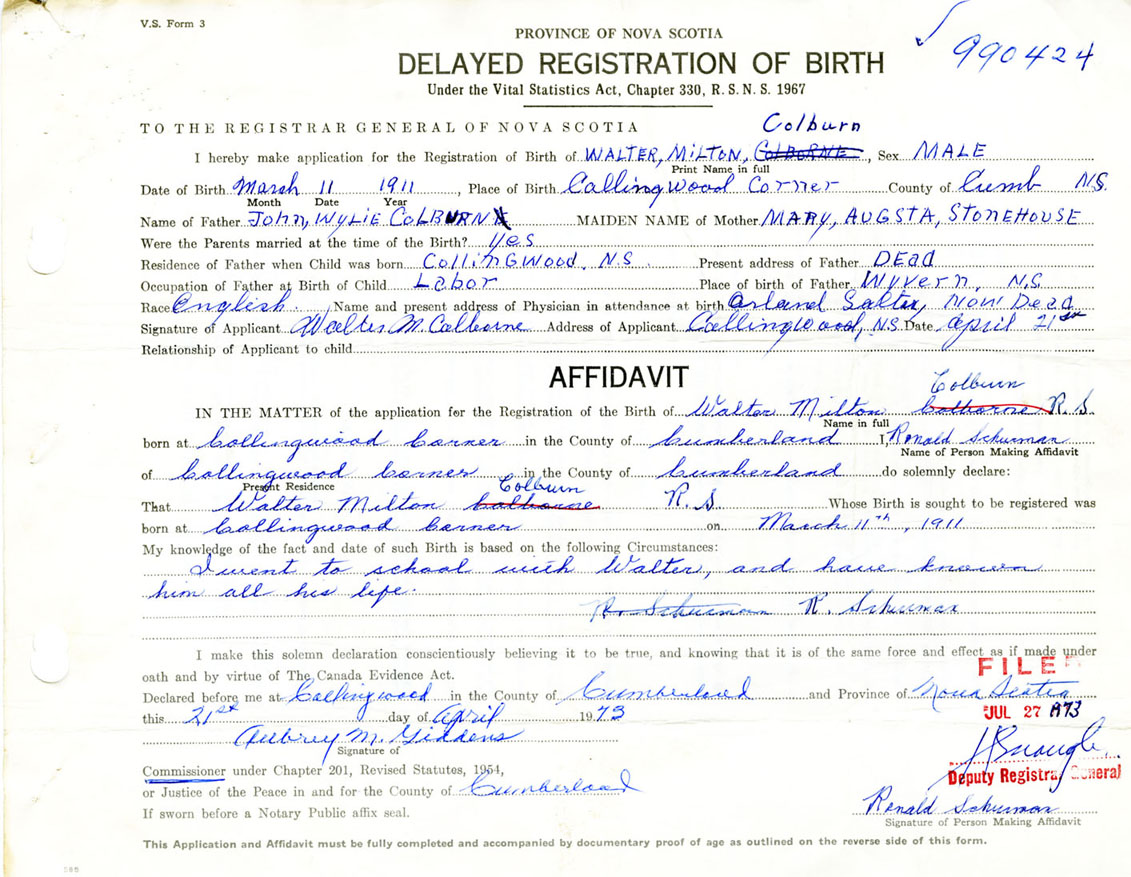 V.S. Form 3
PROVINCE OF NOVA SCOTIA
990424
DELAYED REGISTRATION OF BIRTH
Under the Vital Statistics Act, Chapter 330, R.S.N.S. 1967
TO THE REGISTRAR GENERAL OF NOVA SCOTIA
Colburn
I hereby make application for the Registration of Birth of WALTER, MILTON, COLBORNE, Sex MALE
Print Name in full
Date of Birth March 11 1911, Place of Birth Collingwood Corner County of Cumb N.S.
Month Date Year
Name of Father John, WYLIE COLBURN MAIDEN NAME of Mother MARY, AUGSTA, STONEHOUSE
Were the Parents married at the time of the Birth? yes
Residence of Father when Child was born COLLINGWOOD, N.S. Present address of Father DEAD
Occupation of Father at Birth of Child Labor Place of birth of Father Wyvern, N.S
Race English Name and present address of Physician in attendance at birth Salter, Now Dead
Signature of Applicant Walter M. Colborne Address of Applicant Collingwood, N.S. Date April 21st
Relationship of Applicant to child
AFFIDAVIT
Colburn
IN THE MATTER of the application for the Registration of the Birth of Walter Milton R.S.
Name in full
born at Collingwood Corner in the County of Cumberland I, Ronald Schurman
Name of Person Making Affidavit
of Collingwood Corner in the County of Cumberland do solemnly declare:
Present Residence Colburn
That Walter Milton R.S Whose Birth is sought to be registered was
born at Collingwood Corner on March 11th, 1911
My knowledge of the fact and date of such Birth is based on the following Circumstances:
I went to school with Walter, and have known
him all his life.
R. Schurman R. Schurman
I make this solemn declaration conscientiously believing it to be true, and knowing that it is of the same force and effect as if made under
oath and by virtue of The Canada Evidence Act.
FILED
Declared before me at Collingwood in the County of Cumberland and Province of Nova Scotia
this 21st day of April 1973
JUL 27 1973
Aubrey M. Giddens
Signature of
Commissioner under Chapter 201, Revised Statutes, 1954,
Deputy Registrar General
or Justice of the Peace in and for the County of Cumberland
Ronald Schurman
If sworn before a Notary Public affix seal.
Signature of Person Making Affidavit
This Application and Affidavit must be fully completed and accompanied by documentary proof of age as outlined on the reverse side of this form.